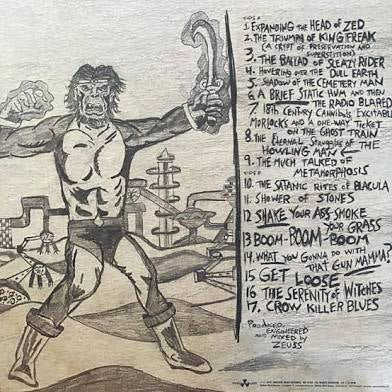 SIDE A
1. EXPANDING THE HEAD OF ZED
2. THE TRIUMPH OF KING FREAK
(A CRYPT OF PRESERVATION AND
SUPERSTITION)
3. THE BALLAD OF SLEAZY RIDER
4. HOVERING OVER THE DULL EARTH
5. SHADOW OF THE CEMETERY MAN
6. A BRIEF STATIC HUM AND THEN
THE RADIO BLARED
7. 18th CENTURY CANNIBALS, EXCITABLE
MORLOCKS AND A ONE-WAY TICKET
ON THE GHOST TRAIN
8. THE ETERNAL STRUGGLES OF THE
HOWLING MAN
9. THE MUCH TALKED OF
METAMORPHOSIS
SIDE B
10. THE SATANIC RITES OF BLACULA
11. SHOWER OF STONES
12 SHAKE YOUR ASS-SMOKE
YOUR GRASS
13 BOOM-BOOM-BOOM
14. WHAT YOU GONNA DO WITH
THAT GUN MAMMA?
15 GET LOOSE
16 THE SERENITY OF WITCHES
17. CROW KILLER BLUES
PRODUCED,
ENGINEERED
AND MIXED by
ZEUSS